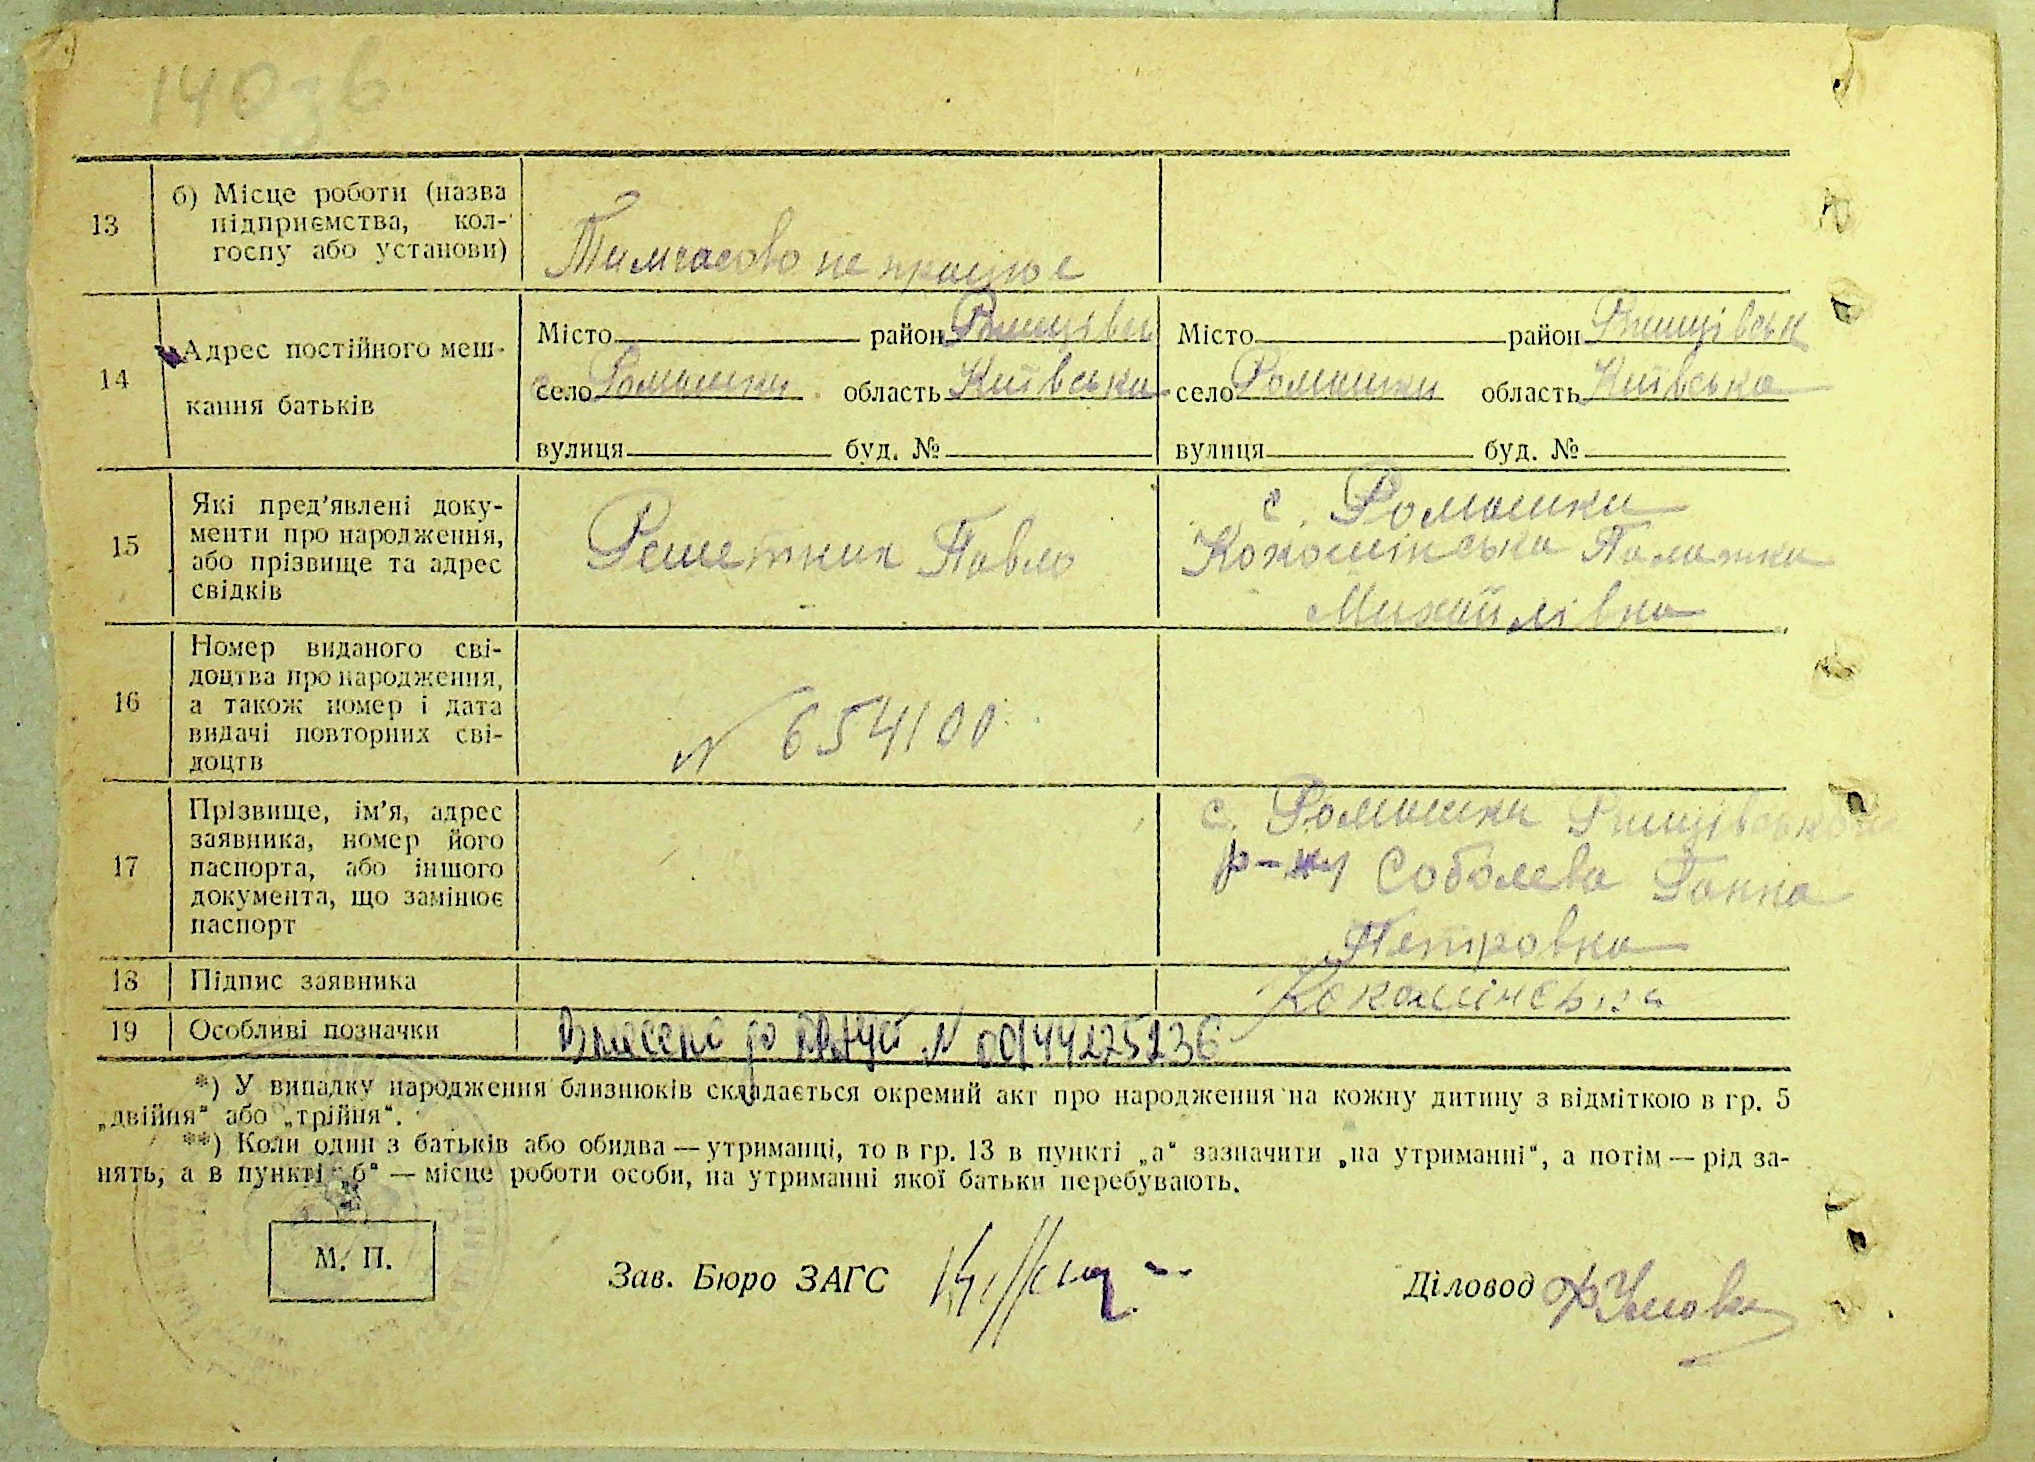 140зв
13
б) Місце роботи (назва
підприємства, кол-
госпу або установи)
Тимчасово не працює
14
Адрес постійного меш-
кання батьків
Місто район Ржищівськ
село Ромашки область Київська
вулиця буд. №
Місто район Ржищівськ
село Ромашки область Київська
вулиця буд. №
15
Які пред'явлені доку-
менти про народження,
або прізвище та адрес
свідків
Решетник Павло
с. Ромашки
Кокошінська Палажка
Михайлівна
16
Номер виданого сві-
доцтва про народження,
а також номер і дата
видачі повторних сві-
доцтв
N 654100
17
Прізвище, ім'я, адрес
заявника, номер його
паспорта, або іншого
документа, що замінює
паспорт
с. Ромашки Ржищівського
р-ну Соболева Ганна
Петровна
18
Підпис заявника
19
Особливі позначки
Внесено до ДРАЦС N 00144275236
*) У випадку народження близнюків складається окремий акт про народження на кожну дитину з відміткою в гр. 5
„двійня“ або „трійня“.
**) Коли один з батьків або обидва — утриманці, то в гр. 13 в пункті „а“ зазначити „на утриманні“, а потім — рід за-
нять, а в пункті „б“ — місце роботи особи, на утриманні якої батьки перебувають.
М. П.
Зав. Бюро ЗАГС
Діловод